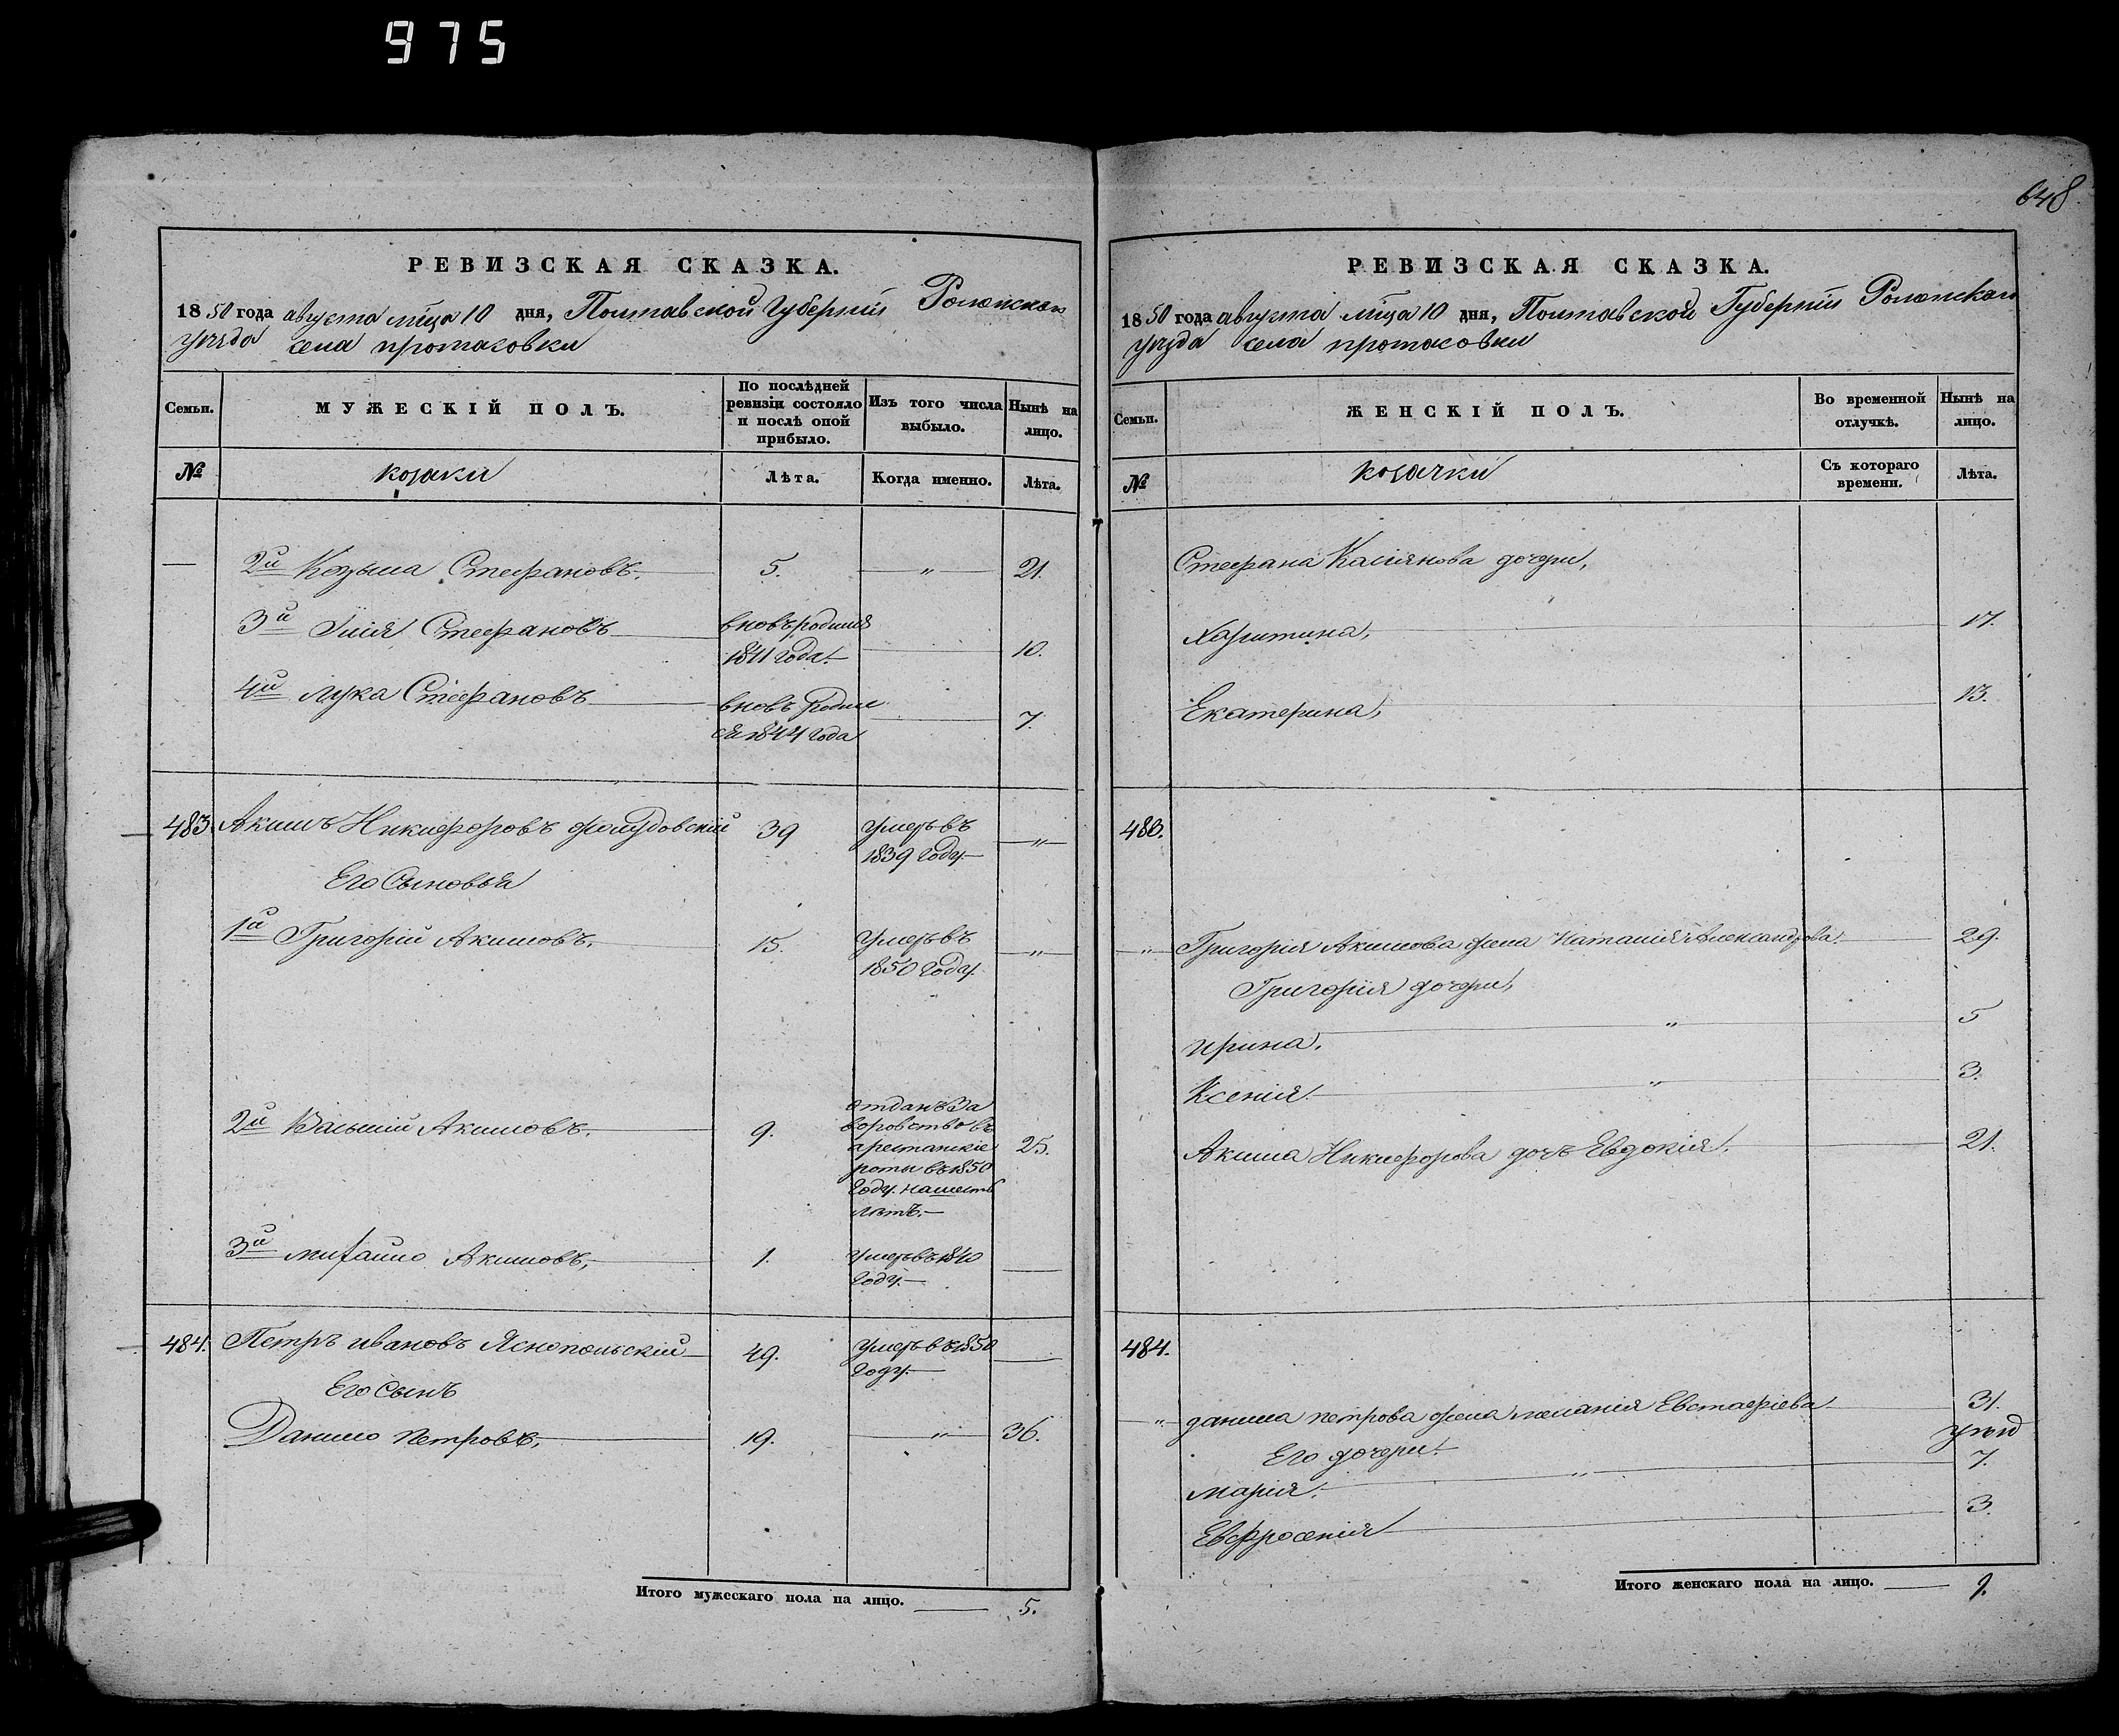 975
648
РЕВИЗСКАЯ СКАЗКА.
1850 года августа мца 10 дня, Полтавской Губерніи Роменскаго
уезда села протасовки
Семьи.
МУЖЕСКІЙ ПОЛЪ.
По послѣдней ревизіи состояло и послѣ оной прибыло.
Изъ того числа выбыло.
Нынѣ на лицо.
№
козаки
Лѣта.
Когда именно.
Лѣта.
2й Козьма Стефановъ. 5. " 21.
3й Илія Стефановъ вновь родился
1841 года. 10.
4й лука Стефановъ вновь родил
ся 1844 года 7.
483. Акимъ Никифоровъ 39 Умеръ въ
1839 году "
Его Сыновья
1й Григорій Акимовъ. 15. Умеръ въ
1850 году. "
2й Василій Акимовъ. 9. отданъ за
воровство въ
арестанскіе 25.
роты въ 1850
году. на шесть
летъ.
3й михайло Акимовъ, 1. Умеръ въ 1840
году.
484. Петръ ивановъ Яснопольскій 49. Умеръ въ 1850
году.
Его Сынъ
Данило петровъ, 19. " 36.
Итого мужескаго пола на лицо. 5.
РЕВИЗСКАЯ СКАЗКА.
1850 года августа мца 10 дня, Полтавской Губерніи Роменскаго
уезда села протасовки
Семьи.
ЖЕНСКІЙ ПОЛЪ.
Во временной отлучкѣ.
Нынѣ на лицо.
№
козачки
Съ котораго времени.
Лѣта.
Стефана Касіянова дочери,
Харитина, 17.
Екатерина, 13.
483.
" Григорія Акимова жена Наталія Александрова. 29.
Григорія дочери,
ирина. " 5
Ксенія. " 3.
Акима Никифорова дочь Евдокія. 21.
484.
" данила петрова жена меланія Евстафіева 31.
Его дочери.
марія. " 7.
Евфросенія 3.
Итого женскаго пола на лицо. 9.